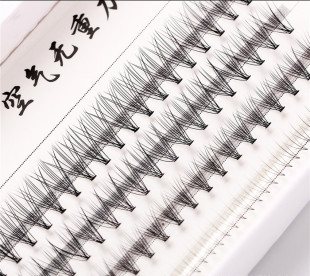 空气无重力